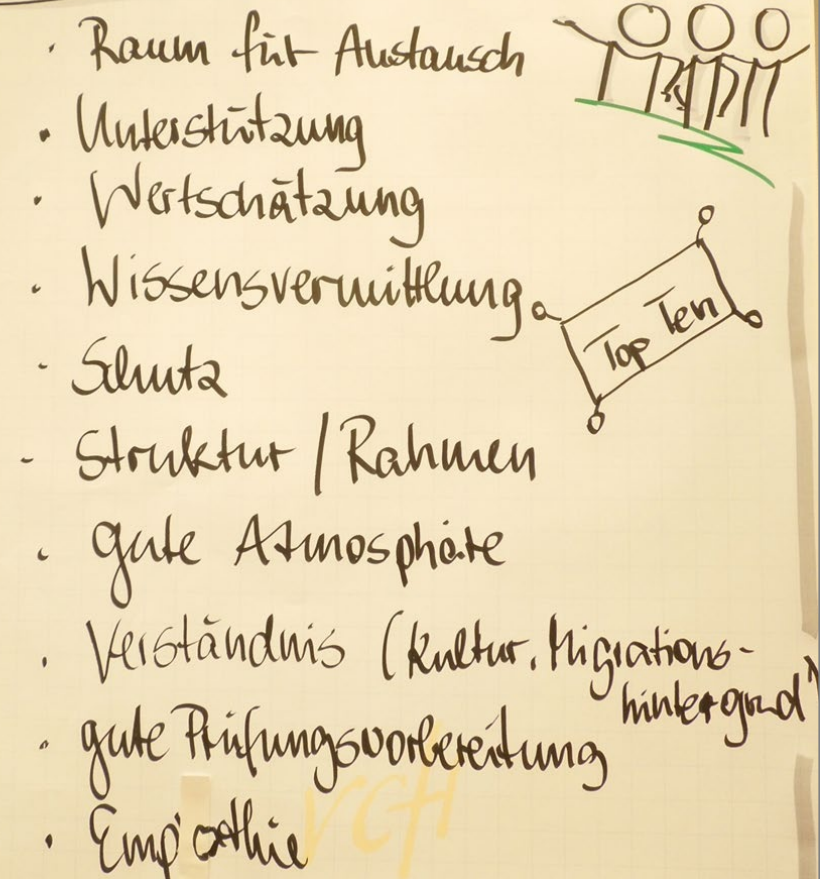 · Raum für Austausch
· Unterstützung
· Wertschätzung
· Wissensvermittlung
Top Ten
· Schutz
- Struktur / Rahmen
· gute Atmosphäre
· Verständnis (Kultur, Migrations-
hintergrund)
· gute Prüfungsvorbereitung
· Empathie